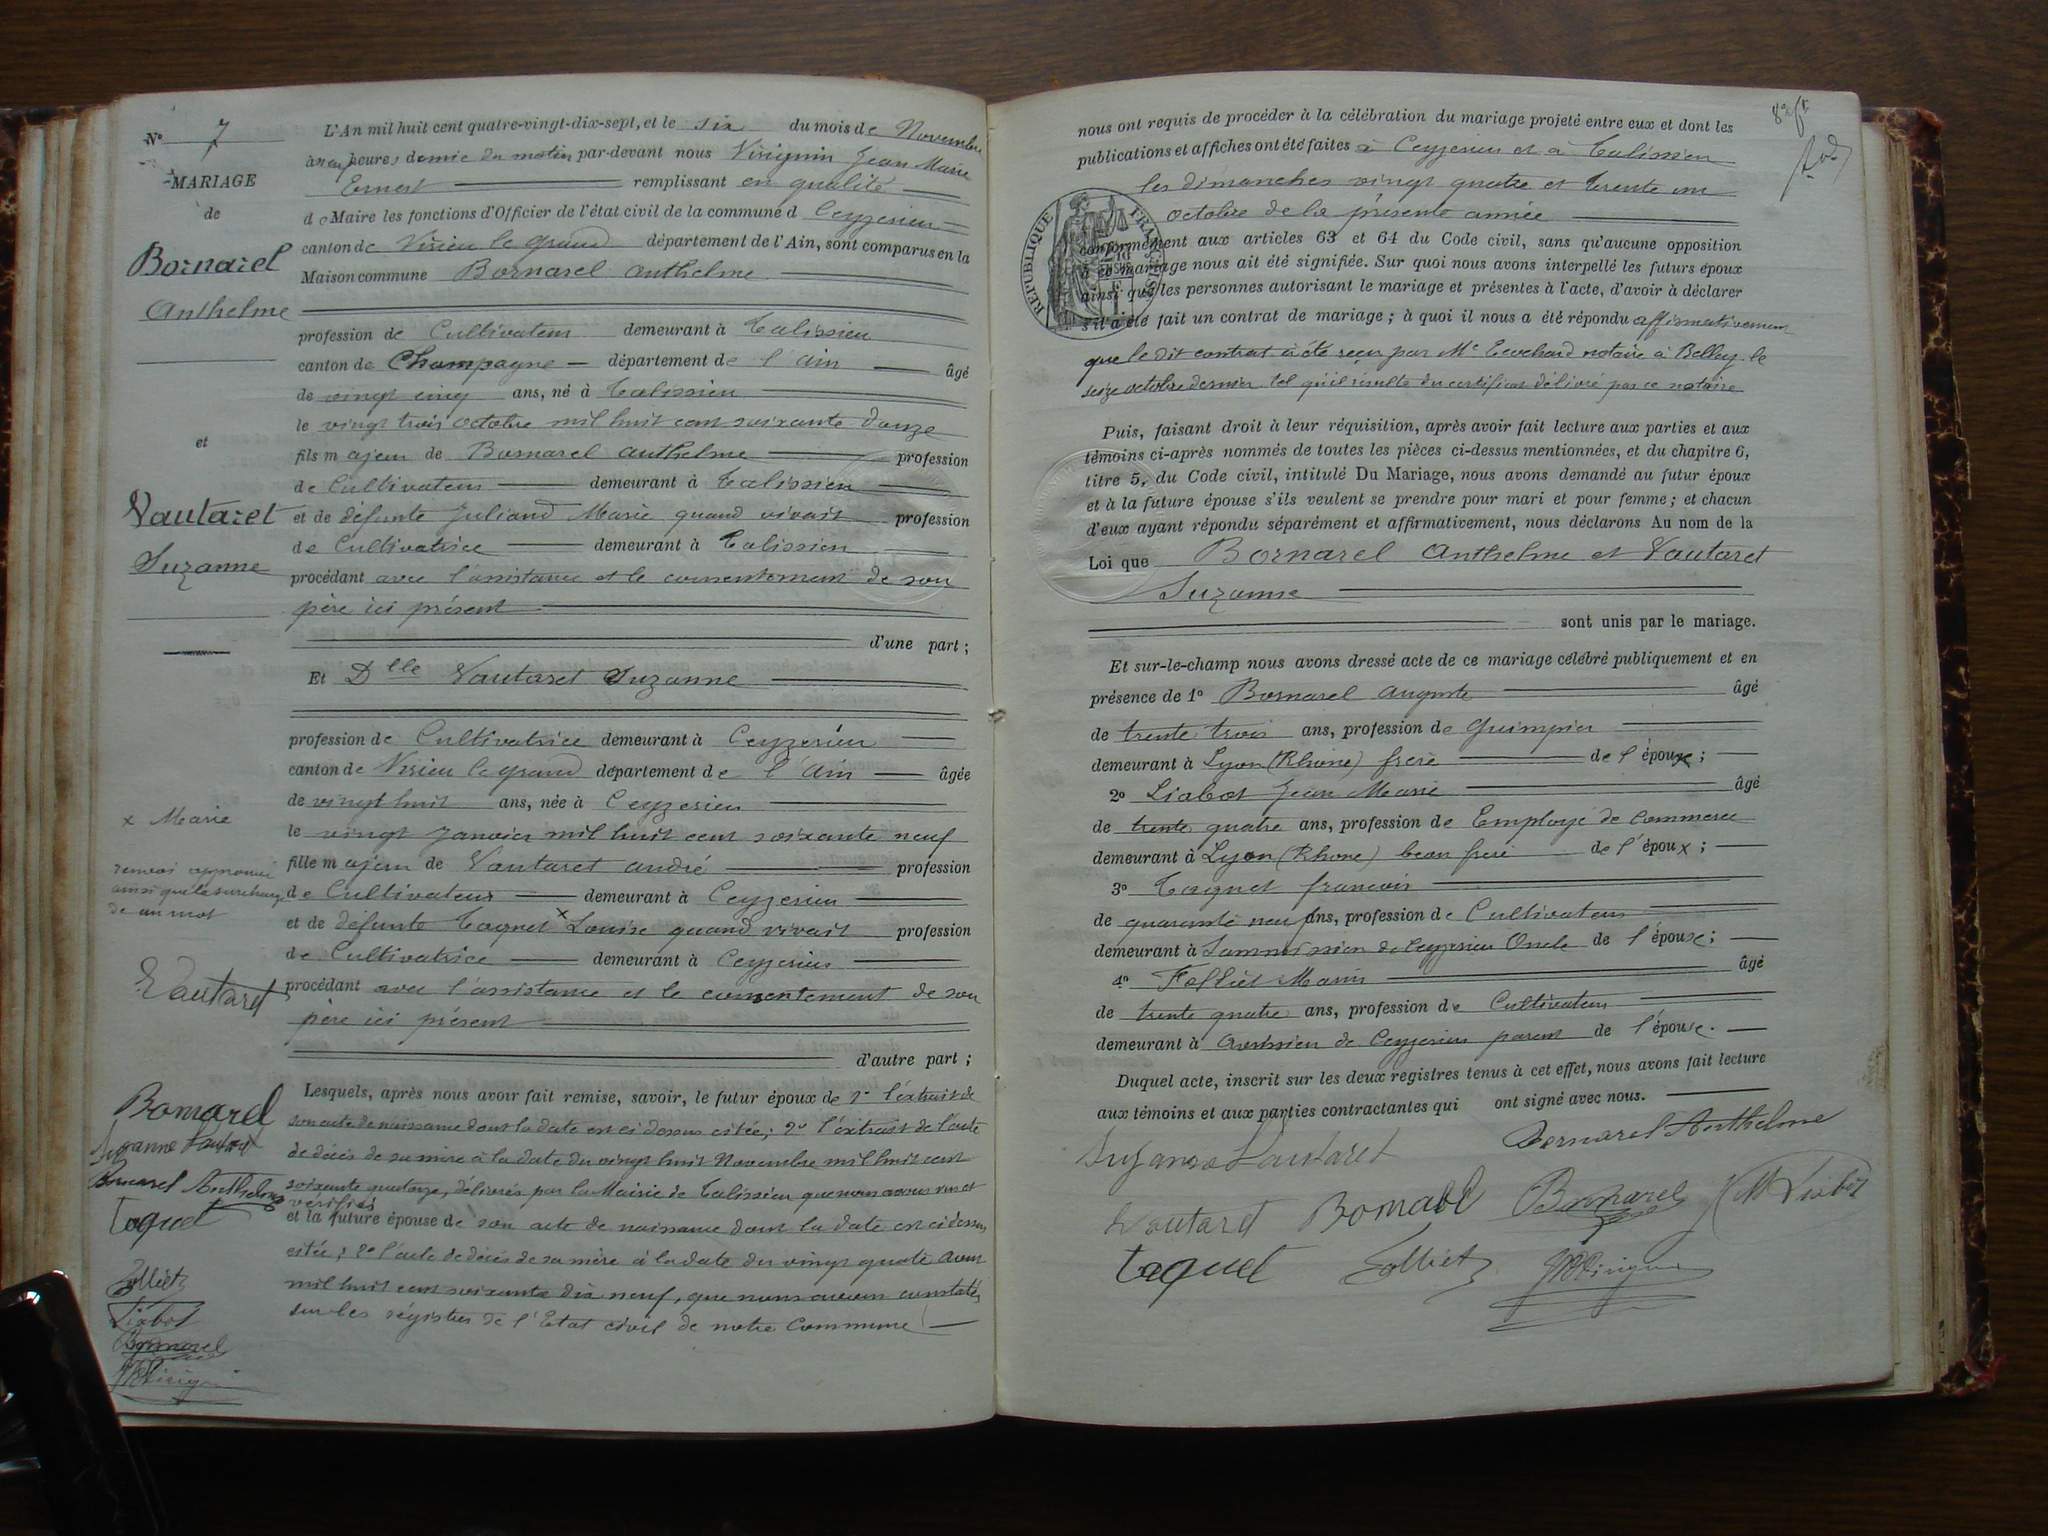 No 7
MARIAGE
de
Bornarel
Anthelme
et
Vautaret
Suzanne
L'An mil huit cent quatre-vingt-dix-sept, et le six du mois de Novembre
à neuf heures demie du matin par-devant nous Virignin Jean Marie
Ernest remplissant en qualité
de Maire les fonctions d'Officier de l'état civil de la commune d Ceyzerieu
canton de Virieu le grand département de l'Ain, sont comparus en la
Maison commune Bornarel Anthelme
profession de Cultivateur demeurant à Talissieu
canton de Champagne département de l'Ain âgé
de vingt cinq ans, né à Talissieu
le vingt trois octobre mil huit cent soixante douze
fils majeur de Bornarel Anthelme profession
de Cultivateur demeurant à Talissieu
et de défunte Juliand Marie quand vivait profession
de Cultivatrice demeurant à Talissieu
procédant avec l'assistance et le consentement de son
père ici présent
d'une part ;
Et Dlle Vautaret Suzanne
profession de Cultivatrice demeurant à Ceyzerieu
canton de Virieu le grand département de l'Ain âgée
de vingt huit ans, née à Ceyzerieu
le vingt Janvier mil huit cent soixante neuf
fille majeur de Vautaret André profession
de Cultivateur demeurant à Ceyzerieu
et de défunte Taquet x Louise quand vivait profession
de Cultivatrice demeurant à Ceyzerieu
procédant avec l'assistance et le consentement de son
père ici présent
d'autre part ;
Lesquels, après nous avoir fait remise, savoir, le futur époux de 1° l'extrait de
son acte de naissance dont la date est ci dessus citée ; 2° l'extrait de l'acte
de décès de sa mère à la date du vingt huit Novembre mil huit cent
soixante quatorze, délivrés par la Mairie de Talissieu que nous avons vus et
vérifiés
et la future épouse de son acte de naissance dont la date est ci dessus
citée ; 2° l'acte de décès de sa mère à la date du vingt quatre Aout
mil huit cent soixante dix neuf, que nous avons constatés
sur les régistres de l'Etat civil de notre Commune
x Marie
renvoi approuvé
ainsi que la surcharge
de un mot
Vautaret
Bornarel
Suzanne Vautaret
Bornarel Anthelme
Taquet
Folliet
Liabot
Bornarel
nous ont requis de procéder à la célébration du mariage projeté entre eux et dont les
publications et affiches ont été faites à Ceyzerieu et à Talissieu
les dimanches vingt quatre et trente un
octobre de la présente année
RÉPUBLIQUE FRANÇAISE
conformément aux articles 63 et 64 du Code civil, sans qu'aucune opposition
à ce mariage nous ait été signifiée. Sur quoi nous avons interpellé les futurs époux
ainsi que les personnes autorisant le mariage et présentes à l'acte, d'avoir à déclarer
s'il a été fait un contrat de mariage ; à quoi il nous a été répondu affirmativement
que le dit contrat a été reçu par Me notaire à Belley le
seize octobre dernier tel qu'il résulte du certificat délivré par ce notaire
Puis, faisant droit à leur réquisition, après avoir fait lecture aux parties et aux
témoins ci-après nommés de toutes les pièces ci-dessus mentionnées, et du chapitre 6,
titre 5, du Code civil, intitulé Du Mariage, nous avons demandé au futur époux
et à la future épouse s'ils veulent se prendre pour mari et pour femme ; et chacun
d'eux ayant répondu séparément et affirmativement, nous déclarons Au nom de la
Loi que Bornarel Anthelme et Vautaret
Suzanne
sont unis par le mariage.
Et sur-le-champ nous avons dressé acte de ce mariage célébré publiquement et en
présence de 1o Bornarel Auguste âgé
de trente trois ans, profession de Guimpier
demeurant à Lyon (Rhône) frère de l'époux ;
2o Liabot Jean Marie âgé
de trente quatre ans, profession de Employé de commerce
demeurant à Lyon (Rhone) beau frère de l'époux ;
3o Taquet françois
de quarante neuf ans, profession de Cultivateur
demeurant à de Ceyzerieu Oncle de l'épouse ;
4o Folliet Marin âgé
de trente quatre ans, profession de Cultivateur
demeurant à Avrissieu de Ceyzerieu parent de l'épouse.
Duquel acte, inscrit sur les deux registres tenus à cet effet, nous avons fait lecture
aux témoins et aux parties contractantes qui ont signé avec nous.
Bornarel Anthelme
Suzanne Vautaret
Vautaret Bornarel Bornarel JM Liabot
Taquet Folliet